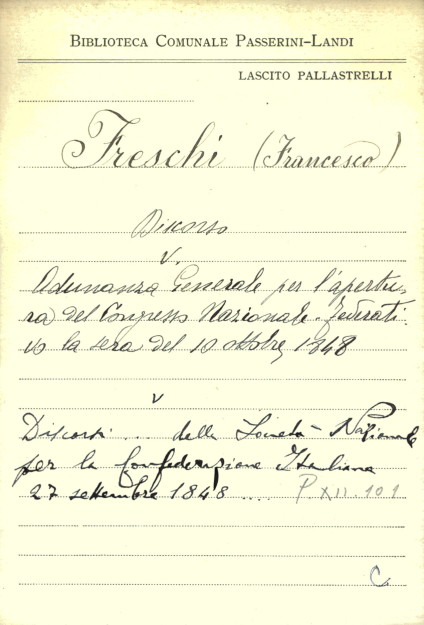 BIBLIOTECA COMUNALE PASSERINI-LANDI
LASCITO PALLASTRELLI
Freschi (Francesco)
Discorso
v.
Adunanza Generale per l'apertu-
ra del Congresso Nazionale-federati
vo la sera del 10 ottobre 1848
v
Discorsi ... della Società Nazionale
per la Confederazione Italiana
27 settembre 1848 .... P XII. 101
C